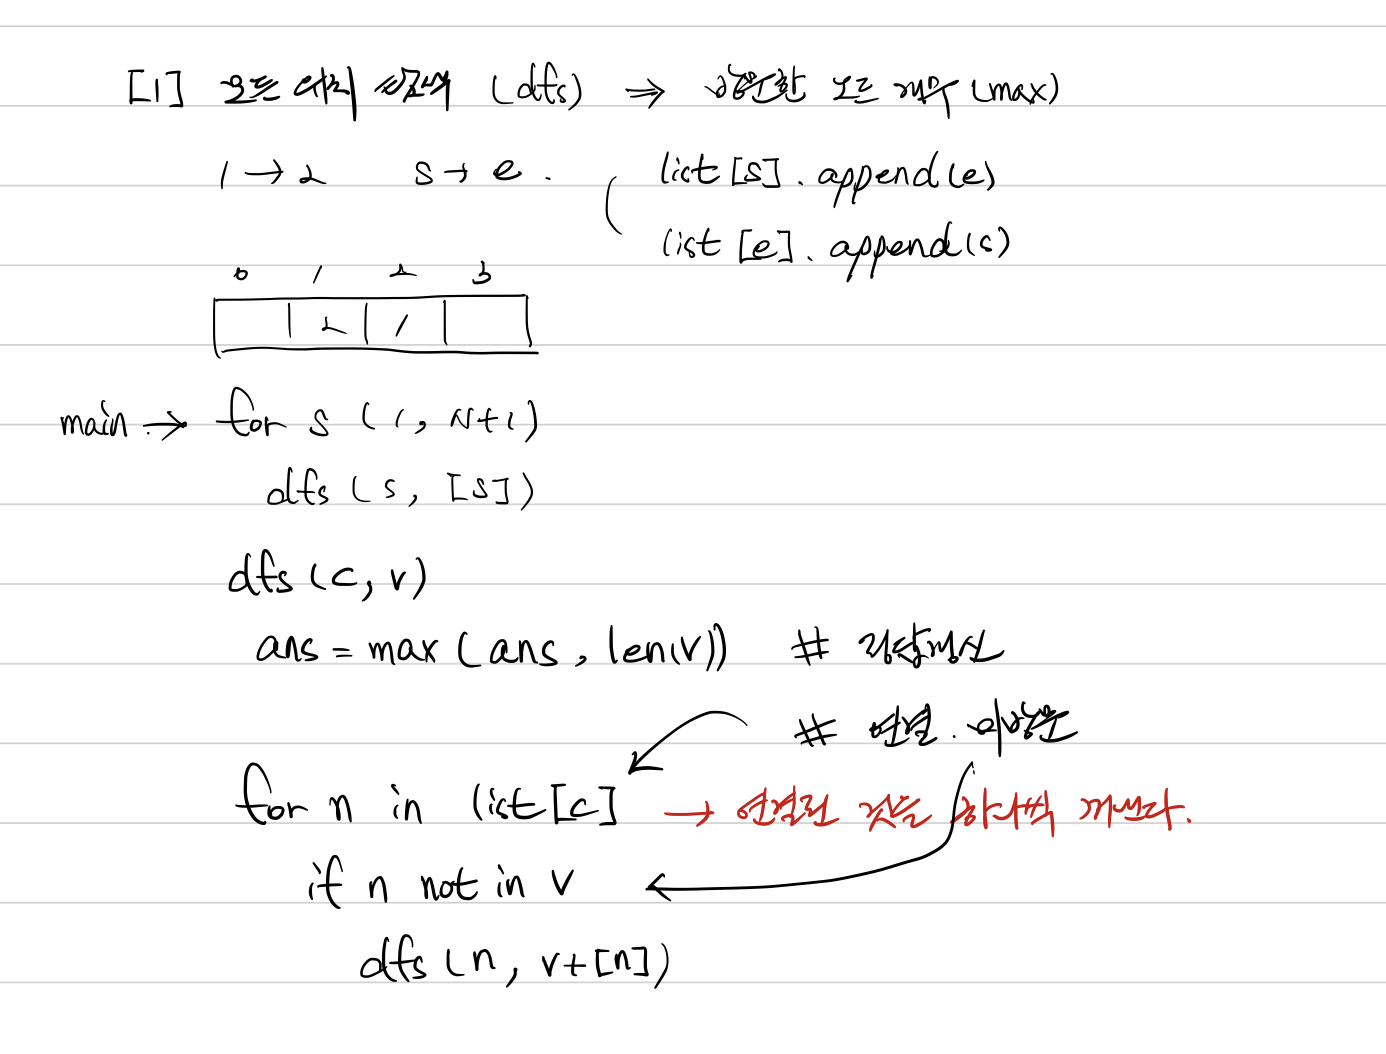 [1] 모든 탐색 (dfs) ⇒ 방문한 노드 개수 (max)
1 → 2 s → e . ( list[s].append(e)
list[e].append(s)
0 1 2 3
2 1
main → for s (1, N+1)
dfs (s, [s])
dfs (c, v)
ans = max (ans, len(v)) # 정답갱신
# 연결. 미방문
for n in list[c] → 연결된 것들 하나씩 꺼낸다.
if n not in v
dfs (n, v+[n])